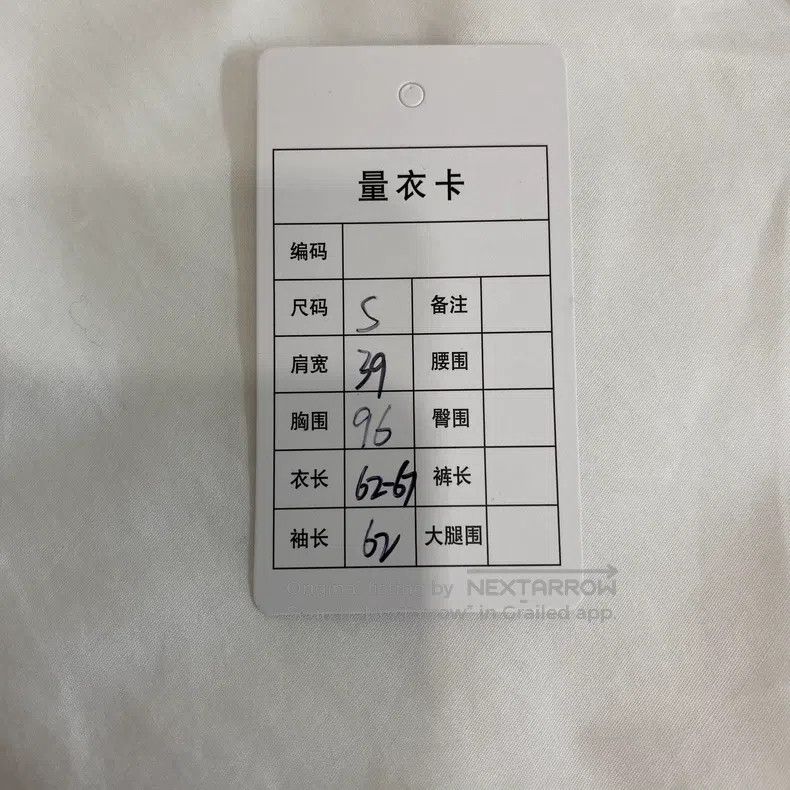 量衣卡
编码
尺码 S 备注
肩宽 39 腰围
胸围 96 臀围
衣长 62-67 裤长
袖长 62 大腿围
Original listing by NEXTARROW
"nextarrow" in Grailed app